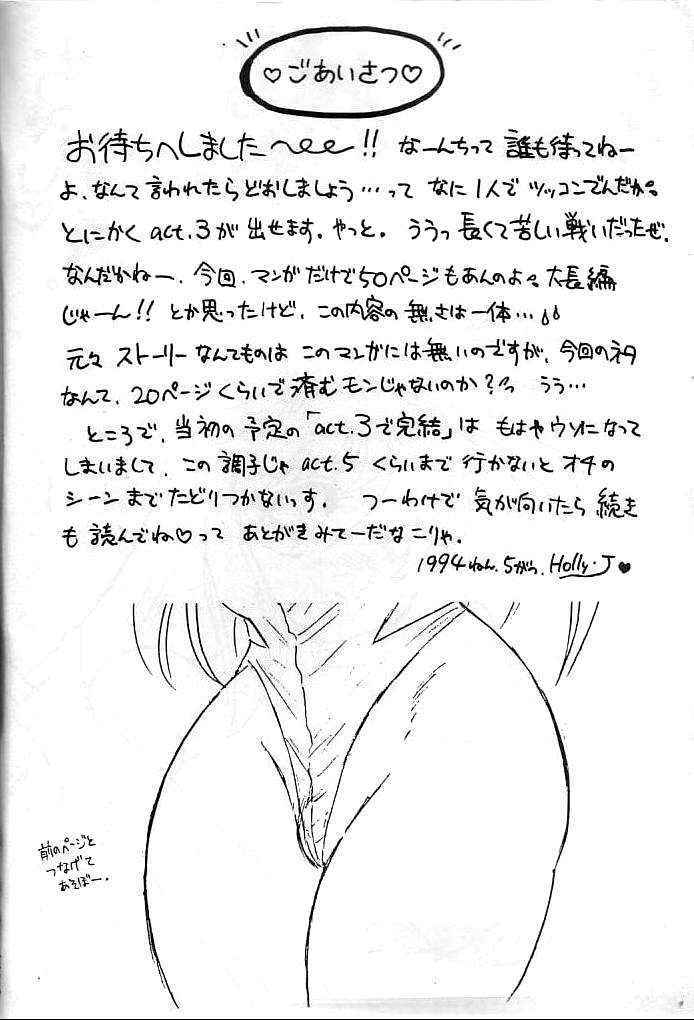 ♡ごあいさつ♡
お待ちへしました〜ee!! なーんちって 誰も待ってねー
よ、なんて言われたらどおしましょう…って なに1人で ツッコンでんだか。
とにかく act.3が 出せます。やっと。 ううっ 長くて苦しい戦いだったぜ.
なんだかねー、今回、マンガだけで50ページもあんのよ。大長編
じゃーん!! とか思ったけど、この内容の 無さは一体…
元々 ストーリーなんてものは このマンガには無いのですが、今回のネタ
なんて、20ページくらいで済むモンじゃないのか? うう…
ところで、当初の 予定の「act.3で完結」は もはやウソになって
しまいまして、この 調子じゃ act.5 くらいまで 行かないと オチの
シーンまでたどりつかないっす。 つーわけで 気が向いたら 続き
も 読んでね♡って あとがきみてーだな こりゃ.
1994ねん.5がつ. Holly・J♥
前のページと
つなげて
あそぼー.